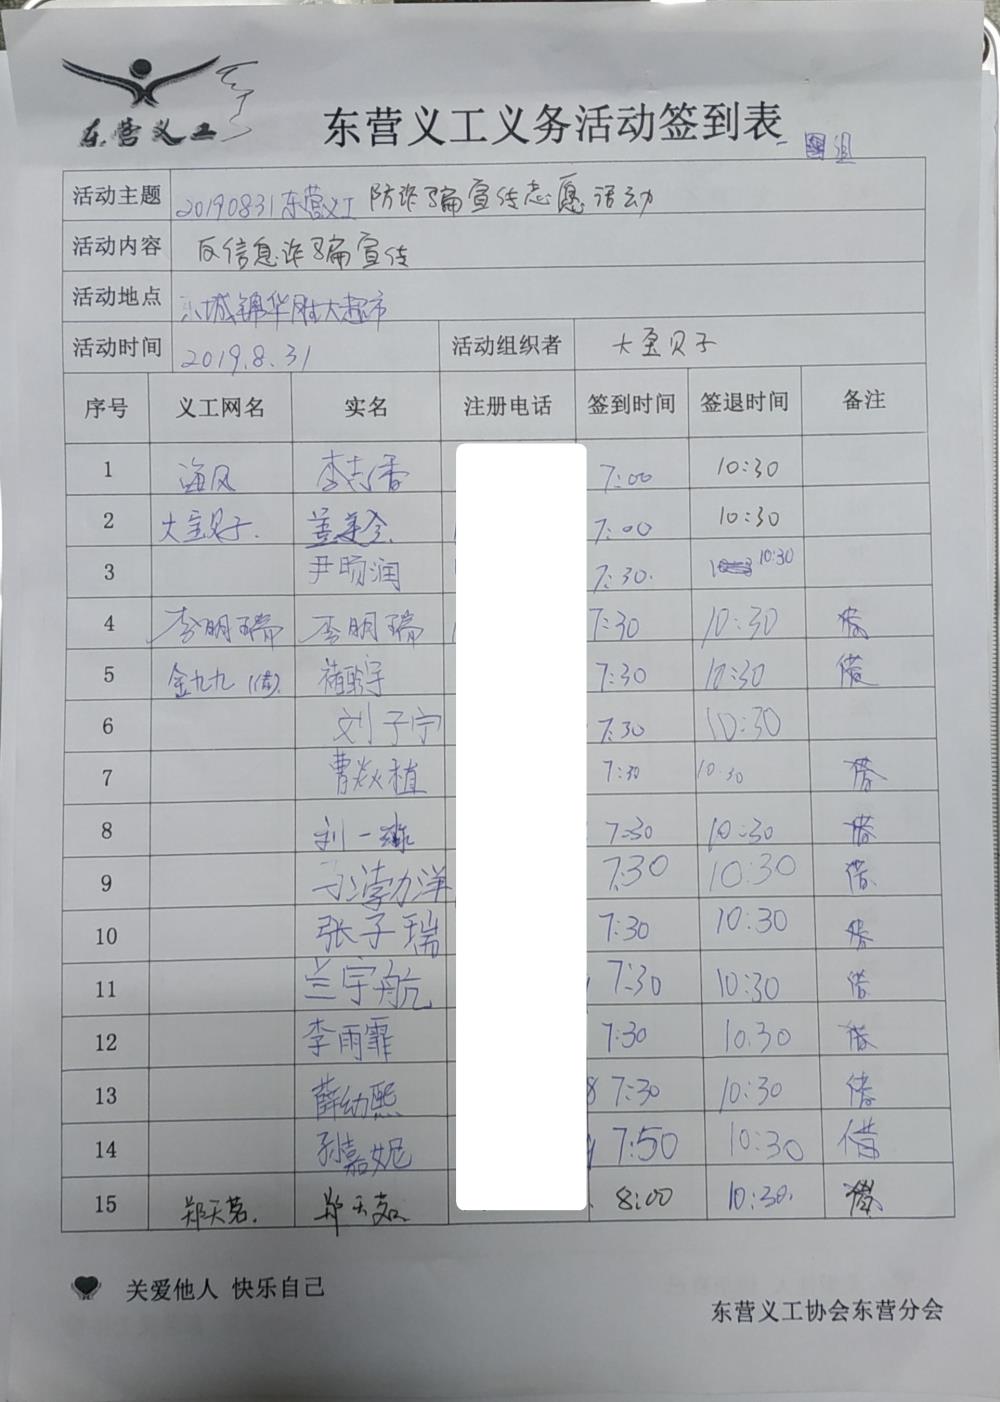 东营义工
东营义工义务活动签到表
组
活动主题 20190831东营义工 防诈骗宣传志愿活动
活动内容 反信息诈骗宣传
活动地点 东城锦华胜大超市
活动时间 2019.8.31 活动组织者 大宝贝子
序号 义工网名 实名 注册电话 签到时间 签退时间 备注
1 海风 李志香 7:00 10:30
2 大宝贝子. 7:00 10:30
3 尹旸润 7:30. 10:30
4 李明瑞 李明瑞 7:30 10:30 借
5 金九九(借) 7:30 10:30 借
6 刘子宁 7:30 10:30
7 曹焱植 7:30 10:30 借
8 刘一 7:30 10:30 借
9 于渤洋 7:30 10:30 借
10 张子瑞 7:30 10:30 借
11 兰宇航 7:30 10:30 借
12 李雨霏 7:30 10:30 借
13 薛幼熙 8 7:30 10:30 借
14 孙嘉妮 7:50 10:30 借
15 郑天茗. 郑天茗 8:00 10:30. 借
关爱他人 快乐自己
东营义工协会东营分会